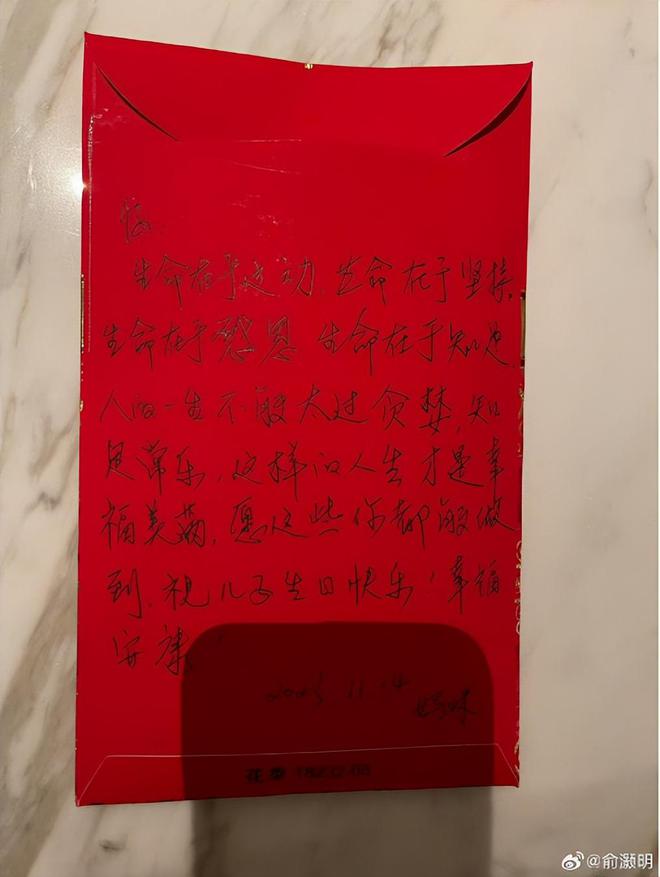 生命在于运动，生命在于坚持，
生命在于感恩，生命在于知足，
人的一生不能太过贪婪，知
足常乐，这样的人生才是幸
福美满，愿这些你都能做
到，祝儿子生日快乐！幸福
安祥！
11.14
@俞灏明